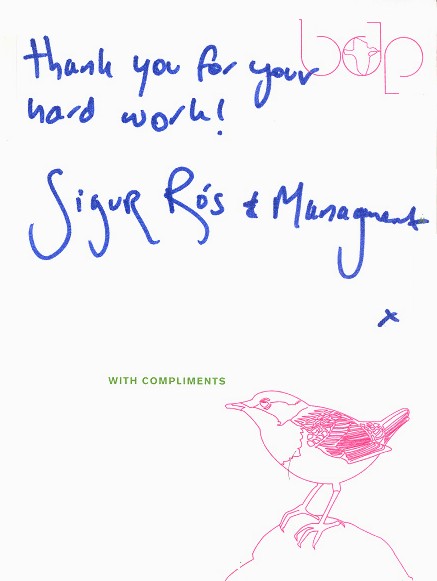 bdp
thank you for your
hard work!
Sigur Rós & Managment
x
WITH COMPLIMENTS